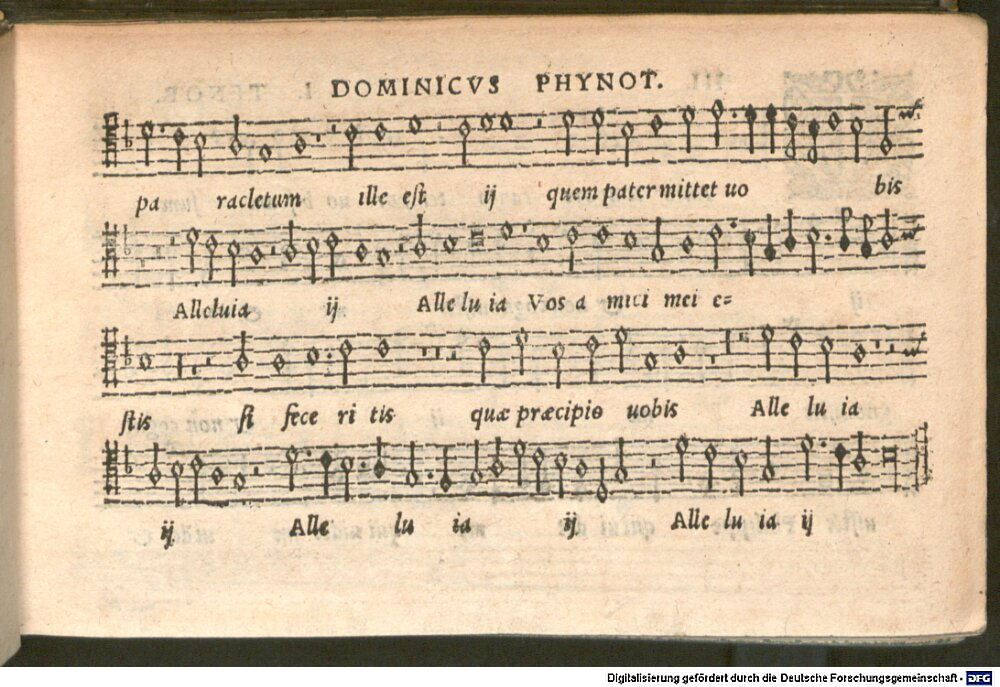 DOMINICVS PHYNOT.
pa racletum ille est ij quem pater mittet uo bis
Alleluia ij Alle lu ia Vos a mici mei e=
stis si fece ri tis quæ præcipio uobis Alle lu ia
ij Alle lu ia ij Alle lu ia ij
Digitalisierung gefördert durch die Deutsche Forschungsgemeinschaft - DFG